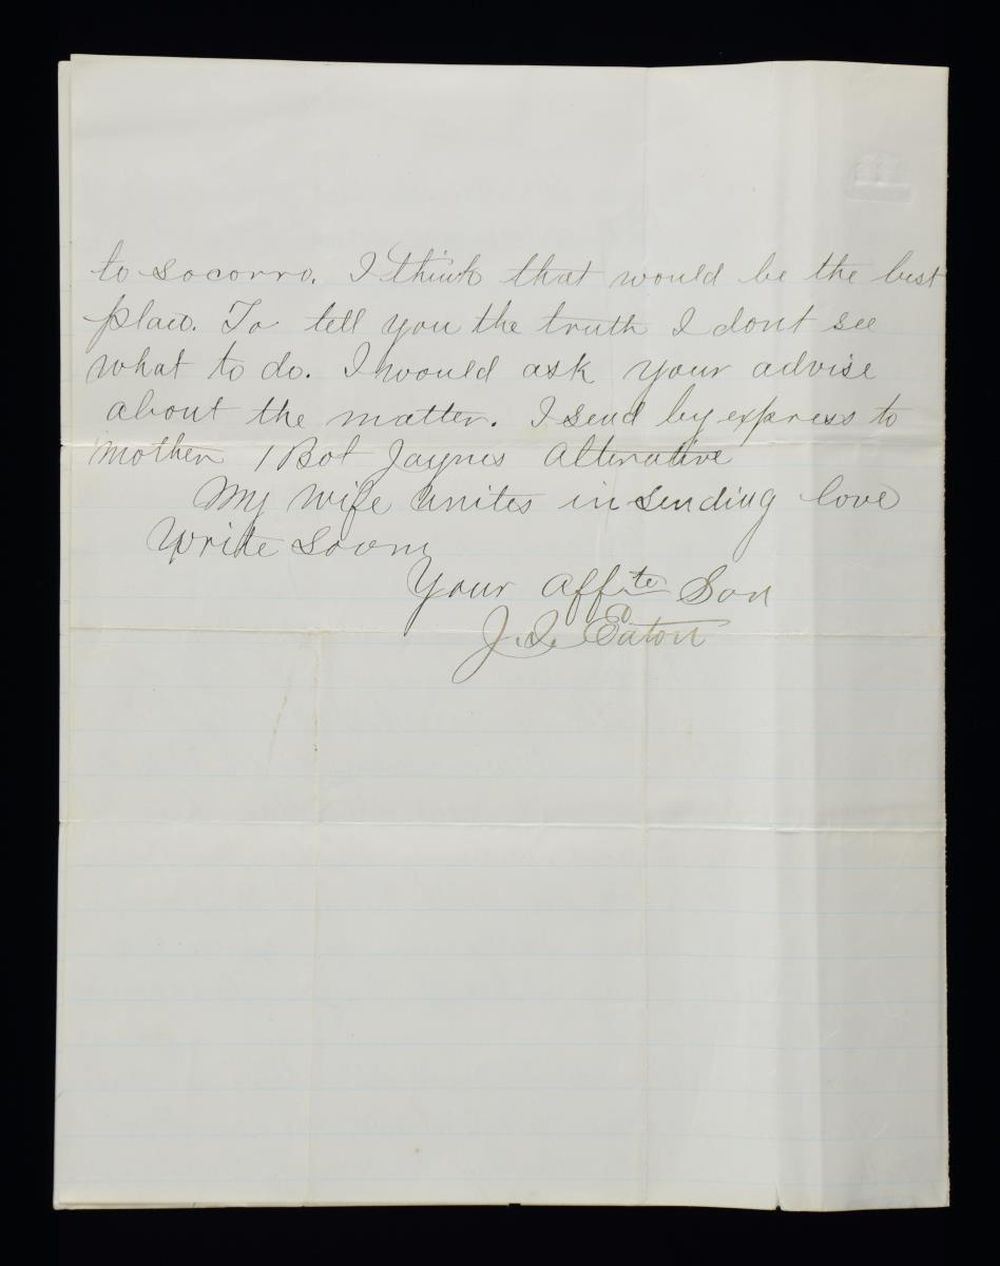 to Socorro. I think that would be the best
plan. To tell you the truth I dont see
what to do. I would ask your advise
about the matter. I send by express to
Mother 1 Bot Jaynes Alterative
My wife unites in sending love
Write Soon
Your affte Son
J. I. Eaton